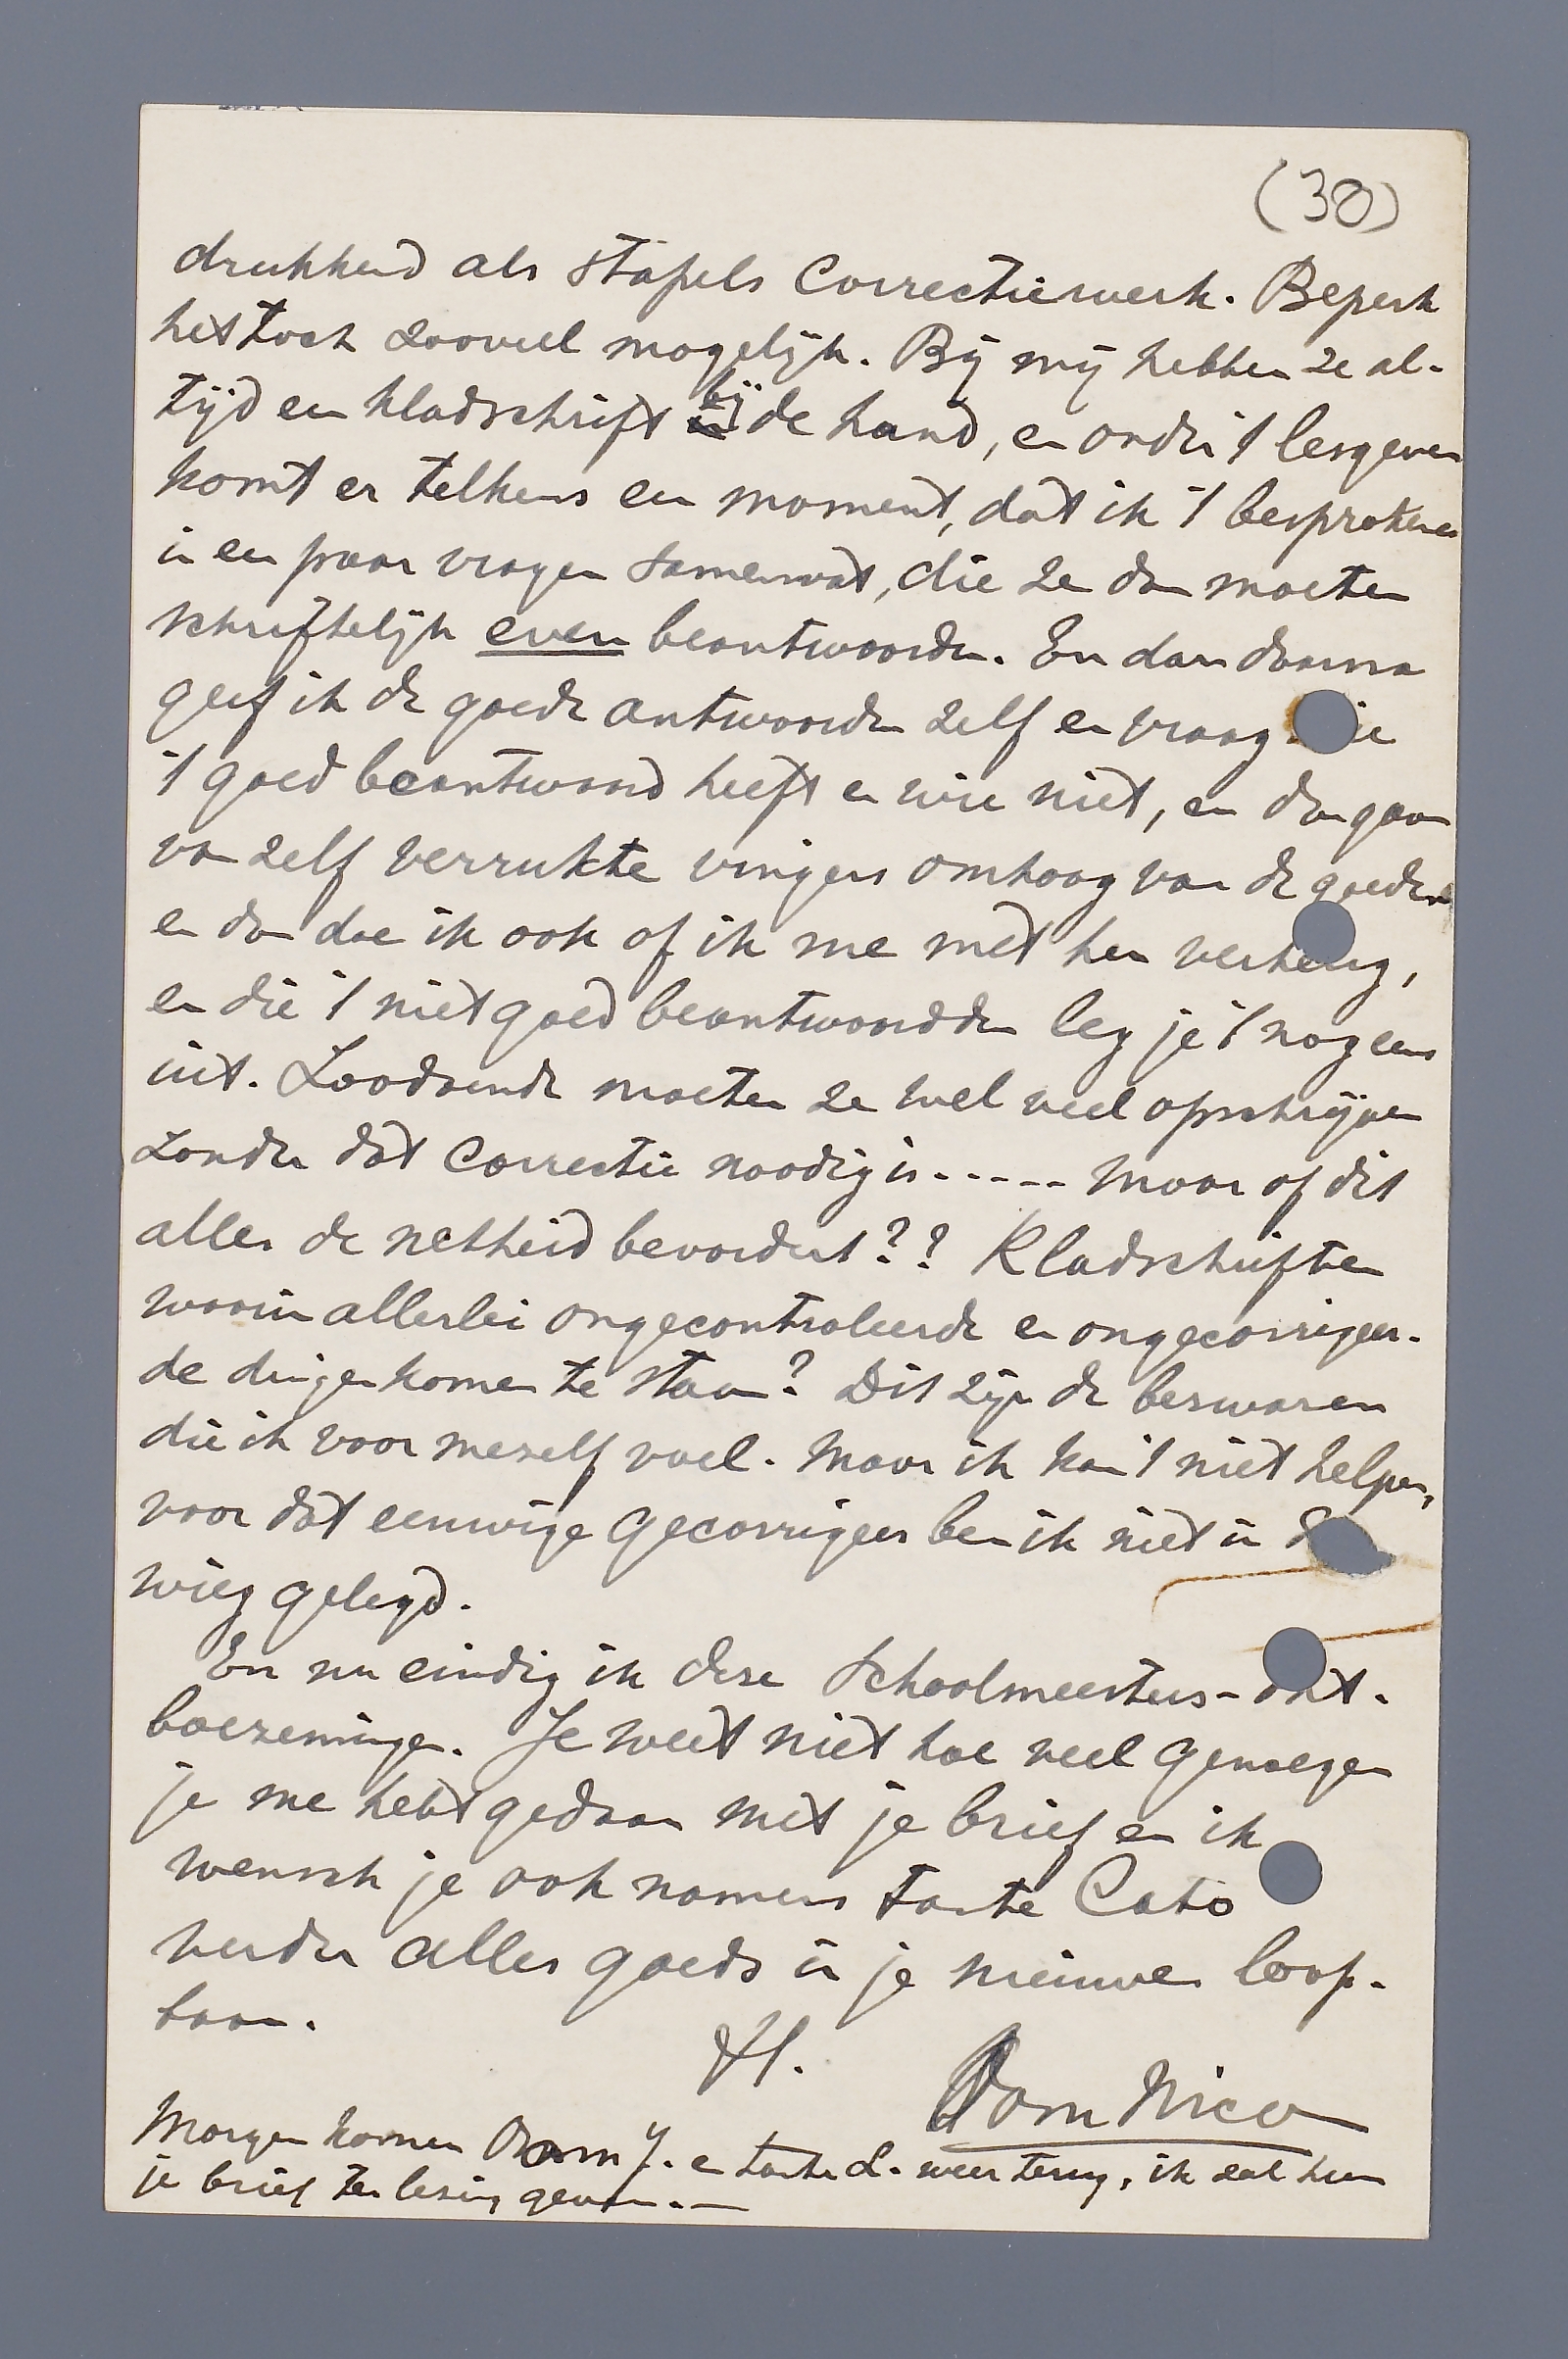 (30)
drukkend als stapels correctiewerk. Beperk
het toch zooveel mogelijk. Bij mij hebben ze al-
tijd een kladschrift bij de hand, en onder 't lesgeven
komt er telkens een moment, dat ik 't besprokene
in een paar vragen samenvat, die ze dan moeten
schriftelijk even beantwoorden. En dan daarna
geef ik de goede antwoorden zelf en vraag wie
't goed beantwoord heeft en wie niet, en dan gaan
van zelf verrukte vingers omhoog van de goeden
en dan doe ik ook of ik me met hen verheug,
en die 't niet goed beantwoordden leg je 't nog eens
uit. Zoodoende moeten ze wel veel opschrijven
zonder dat correctie noodig is----- maar of dit
alles de netheid bevordert?? Kladschriften
waarin allerlei ongecontroleerde en ongecorrigeer-
de dingen komen te staan? Dit zijn de bezwaren
die ik voor mezelf voel. Maar ik kan 't niet helpen,
voor dat eeuwige gecorrigeer ben ik niet in de
wieg gelegd.
En nu eindig ik deze schoolmeesters-ont-
boezemingen. Je weet niet hoe veel genoegen
je me hebt gedaan met je brief en ik
wensch je ook namens tante Cato
verder alles goeds in je nieuwe loop-
baan.
tt.
Oom Nico
Morgen komen Oom J. en tante L. weer terug, ik zal hun
je brief ter lezing geven.—